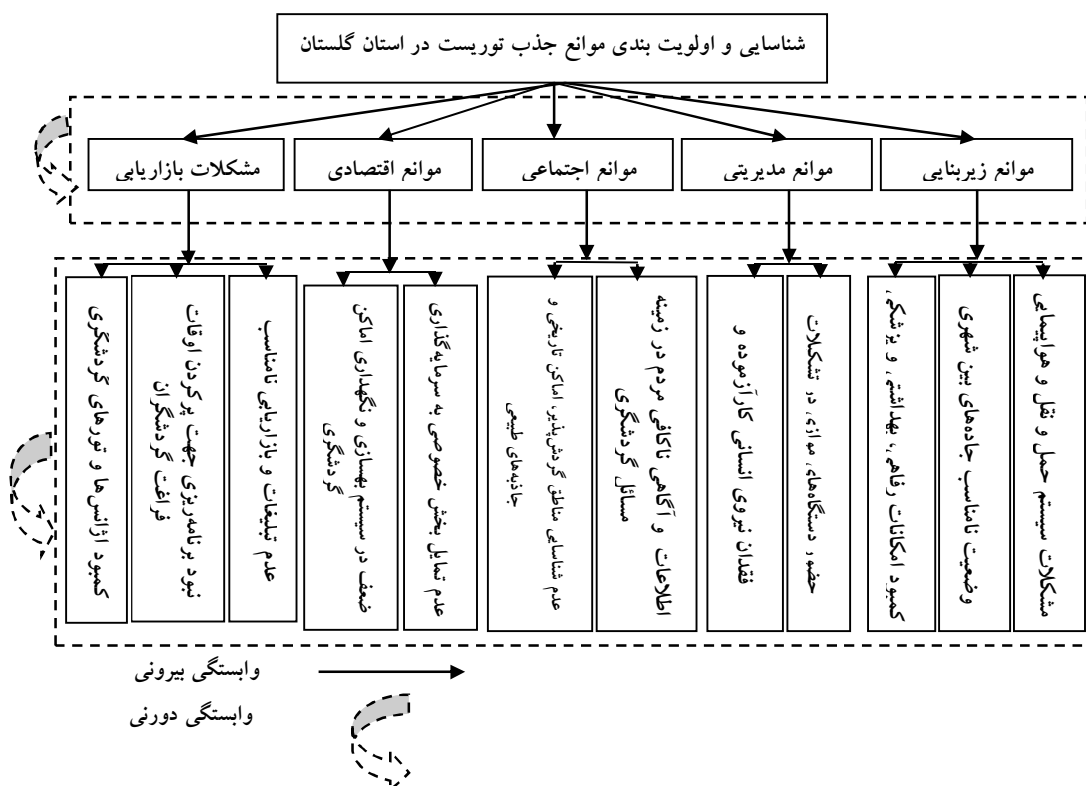 شناسایی و اولویت بندی موانع جذب توریست در استان گلستان
موانع زیربنایی
موانع مدیریتی
موانع اجتماعی
موانع اقتصادی
مشکلات بازاریابی
مشکلات سیستم حمل و نقل و هواپیمایی
وضعیت نامناسب جاده‌های بین شهری
کمبود امکانات رفاهی، بهداشتی و پزشکی
حضور دستگاه‌های موازی در تشکلات
فقدان نیروی انسانی کارآزموده و
اطلاعات و آگاهی ناکافی مردم در زمینه
مسائل گردشگری
عدم شناسایی مناطق گردش‌پذیر، اماکن تاریخی و
جاذبه‌های طبیعی
عدم تمایل بخش خصوصی به سرمایه‌گذاری
ضعف در سیستم بهسازی و نگهداری اماکن
گردشگری
عدم تبلیغات و بازاریابی نامناسب
نبود برنامه‌ریزی جهت پرکردن اوقات
فراغت گردشگران
کمبود آژانس‌ها و تورهای گردشگری
وابستگی بیرونی
وابستگی دورنی